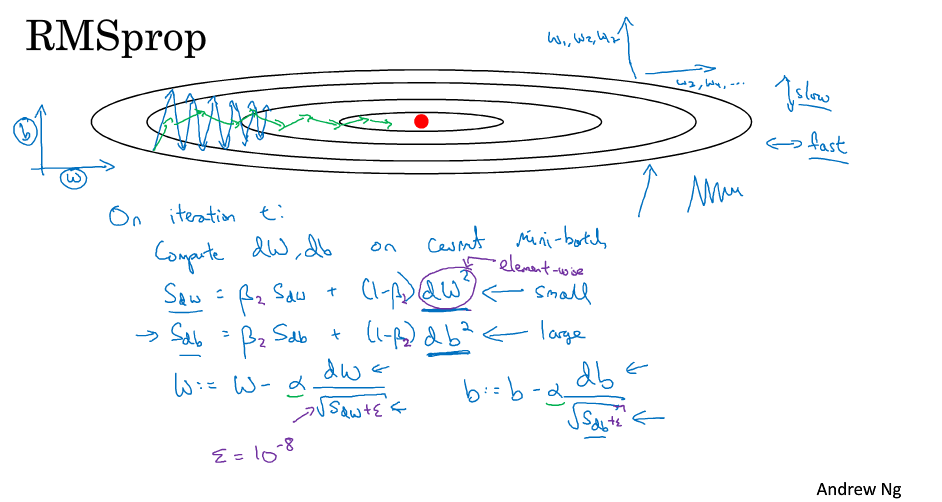 RMSprop
w₁, w₂, w₂
w₃, w₄, ...
slow
fast
b
w
On iteration t:
Compute dW, db on current mini-batch
element-wise
S_dw = β₂ S_dw + (1-β₂) dW² ← small
→ S_db = β₂ S_db + (1-β₂) db² ← large
W := W - α dW / √(S_dw + ε) ← b := b - α db / √(S_db + ε) ←
ε = 10⁻⁸
Andrew Ng